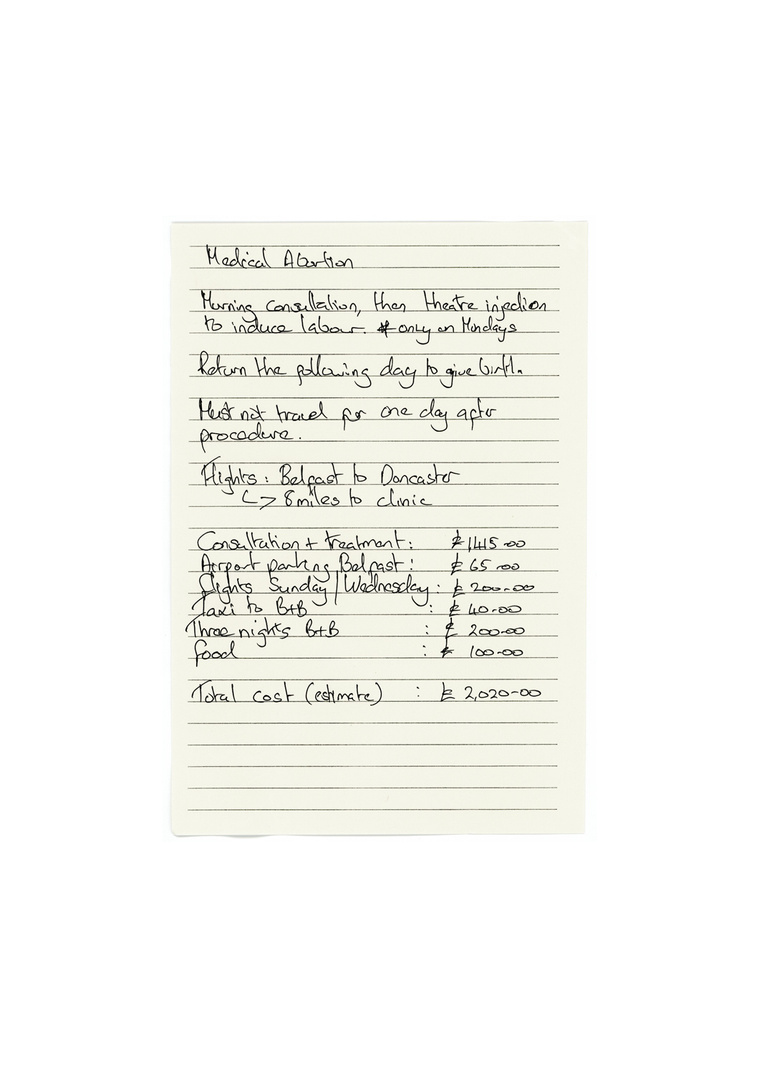 Medical Abortion
Morning consultation, then theatre injection
to induce labour. * only on Mondays
Return the following day to give birth.
Must not travel for one day after
procedure.
Flights : Belfast to Doncaster
↳ 8 miles to clinic
Consultation + treatment : £1,415-00
Airport parking Belfast : £65-00
flights Sunday | Wednesday : £200-00
Taxi to B+B : £40-00
Three nights B+B : £200-00
food : £100-00
Total cost (estimate) : £2,020-00